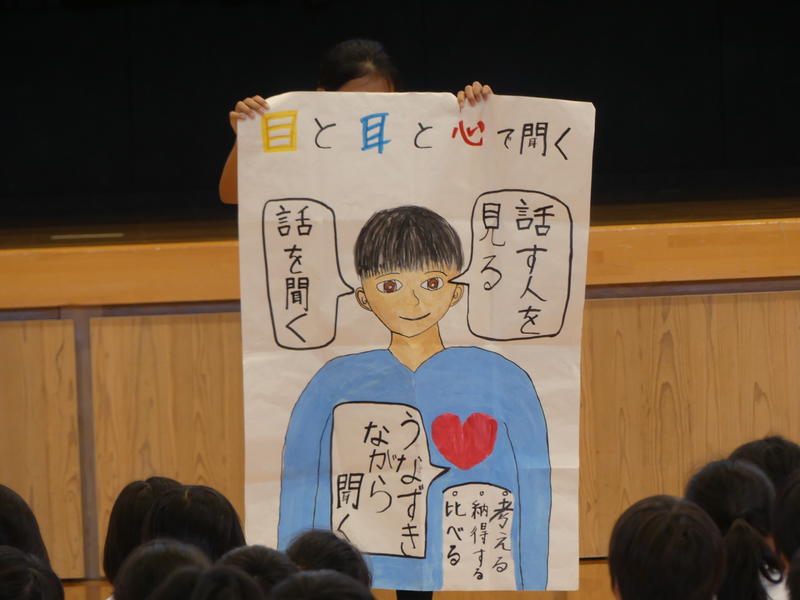 目と耳と心で聞く
話す人を
見る
話を聞く
うなずき
ながら
聞く
・考える
・納得する
・比べる